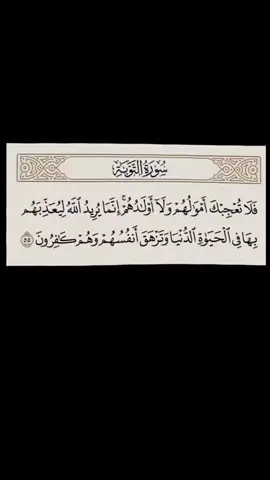 سُورَةُ التَّوْبَةِ
فَلَا تُعْجِبْكَ أَمْوَٰلُهُمْ وَلَآ أَوْلَـٰدُهُمْ ۚ إِنَّمَا يُرِيدُ ٱللَّهُ لِيُعَذِّبَهُم
بِهَا فِى ٱلْحَيَوٰةِ ٱلدُّنْيَا وَتَزْهَقَ أَنفُسُهُمْ وَهُمْ كَـٰفِرُونَ ۝٥٥